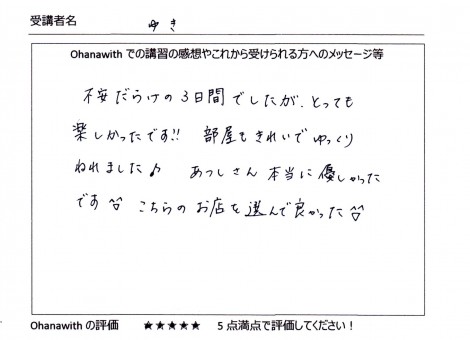 受講者名 ゆき
Ohanawith での講習の感想やこれから受けられる方へのメッセージ等
不安だらけの3日間でしたが、とっても
楽しかったです!! 部屋もきれいでゆっくり
ねれました♪ あつしさん本当に優しかった
です^^ こちらのお店を選んで良かった^^
Ohanawith の評価 ★★★★★ 5点満点で評価してください！